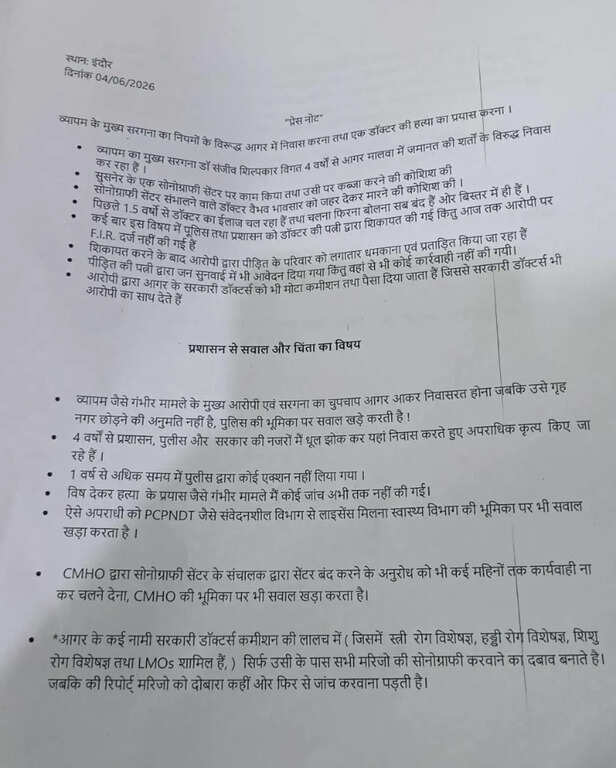 स्थान: इंदौर
दिनांक 04/06/2026
"प्रेस नोट"
व्यापम के मुख्य सरगना का नियमों के विरूद्ध आगर में निवास करना तथा एक डॉक्टर की हत्या का प्रयास करना ।
• व्यापम का मुख्य सरगना डॉ संजीव शिल्पकार विगत 4 वर्षो से आगर मालवा में जमानत की शर्तो के विरुद्ध निवास
कर रहा है ।
• सुसनेर के एक सोनोग्राफी सेंटर पर काम किया तथा उसी पर कब्जा करने की कोशिश की
• सोनोग्राफी सेंटर संभालने वाले डॉक्टर वैभव भावसार को जहर देकर मारने की कोशिश की ।
• पिछले 1.5 वर्षो से डॉक्टर का ईलाज चल रहा हैं तथा चलना फिरना बोलना सब बंद हैं ओर बिस्तर में ही हैं ।
• कई बार इस विषय में पूलिस तथा प्रशासन को डॉक्टर की पत्नी द्वारा शिकायत की गई किंतु आज तक आरोपी पर
F.I.R. दर्ज नहीं की गई हैं
• शिकायत करने के बाद आरोपी द्वारा पीड़ित के परिवार को लगातार धमकाना एवं प्रताड़ित किया जा रहा हैं
• पीड़ित की पत्नी द्वारा जन सुनवाई में भी आवेदन दिया गया किंतु वहां से भी कोई कार्रवाही नहीं की गयी।
• आरोपी द्वारा आगर के सरकारी डॉक्टर्स को भी मोटा कमीशन तथा पैसा दिया जाता हैं जिससे सरकारी डॉक्टर्स भी
आरोपी का साथ देते हैं
प्रशासन से सवाल और चिंता का विषय
• व्यापम जैसे गंभीर मामले के मुख्य आरोपी एवं सरगना का चुपचाप आगर आकर निवासरत होना जबकि उसे गृह
नगर छोड़ने की अनुमति नहीं है, पुलिस की भूमिका पर सवाल खड़े करती है !
• 4 वर्षों से प्रशासन, पुलीस और सरकार की नजरों में धूल झोक कर यहां निवास करते हुए अपराधिक कृत्य किए जा
रहे हैं ।
• 1 वर्ष से अधिक समय में पुलीस द्वारा कोई एक्शन नहीं लिया गया ।
• विष देकर हत्या के प्रयास जैसे गंभीर मामले मैं कोई जांच अभी तक नहीं की गई।
• ऐसे अपराधी को PCPNDT जैसे संवेदनशील विभाग से लाइसेंस मिलना स्वास्थ्य विभाग की भूमिका पर भी सवाल
खड़ा करता है ।
• CMHO द्वारा सोनोग्राफी सेंटर के संचालक द्वारा सेंटर बंद करने के अनुरोध को भी कई महिनों तक कार्यवाही ना
कर चलने देना, CMHO की भूमिका पर भी सवाल खड़ा करता है।
• *आगर के कई नामी सरकारी डॉक्टर्स कमीशन की लालच में ( जिसमें स्त्री रोग विशेषज्ञ, हड्डी रोग विशेषज्ञ, शिशु
रोग विशेषज्ञ तथा LMOs शामिल हैं, ) सिर्फ उसी के पास सभी मरिजो की सोनोग्राफी करवाने का दबाव बनाते है।
जबकि की रिपोर्ट् मरिजो को दोबारा कहीं ओर फिर से जांच करवाना पड़ती है।